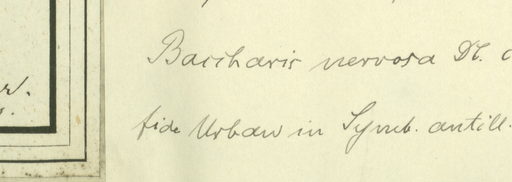 Baccharis nervosa DC.
fide Urban in Symb. antill.